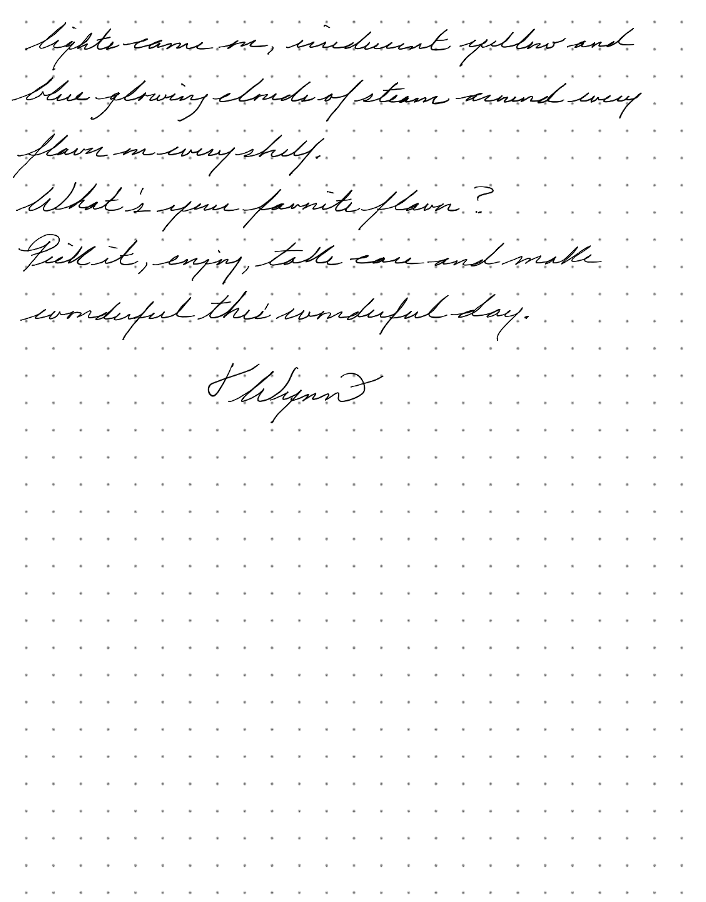 lights came on, iridescent yellow and
blue glowing clouds of steam around every
flavor on every shelf.
What's your favorite flavor?
Pick it, enjoy, take care and make
wonderful this wonderful day.
Wynn